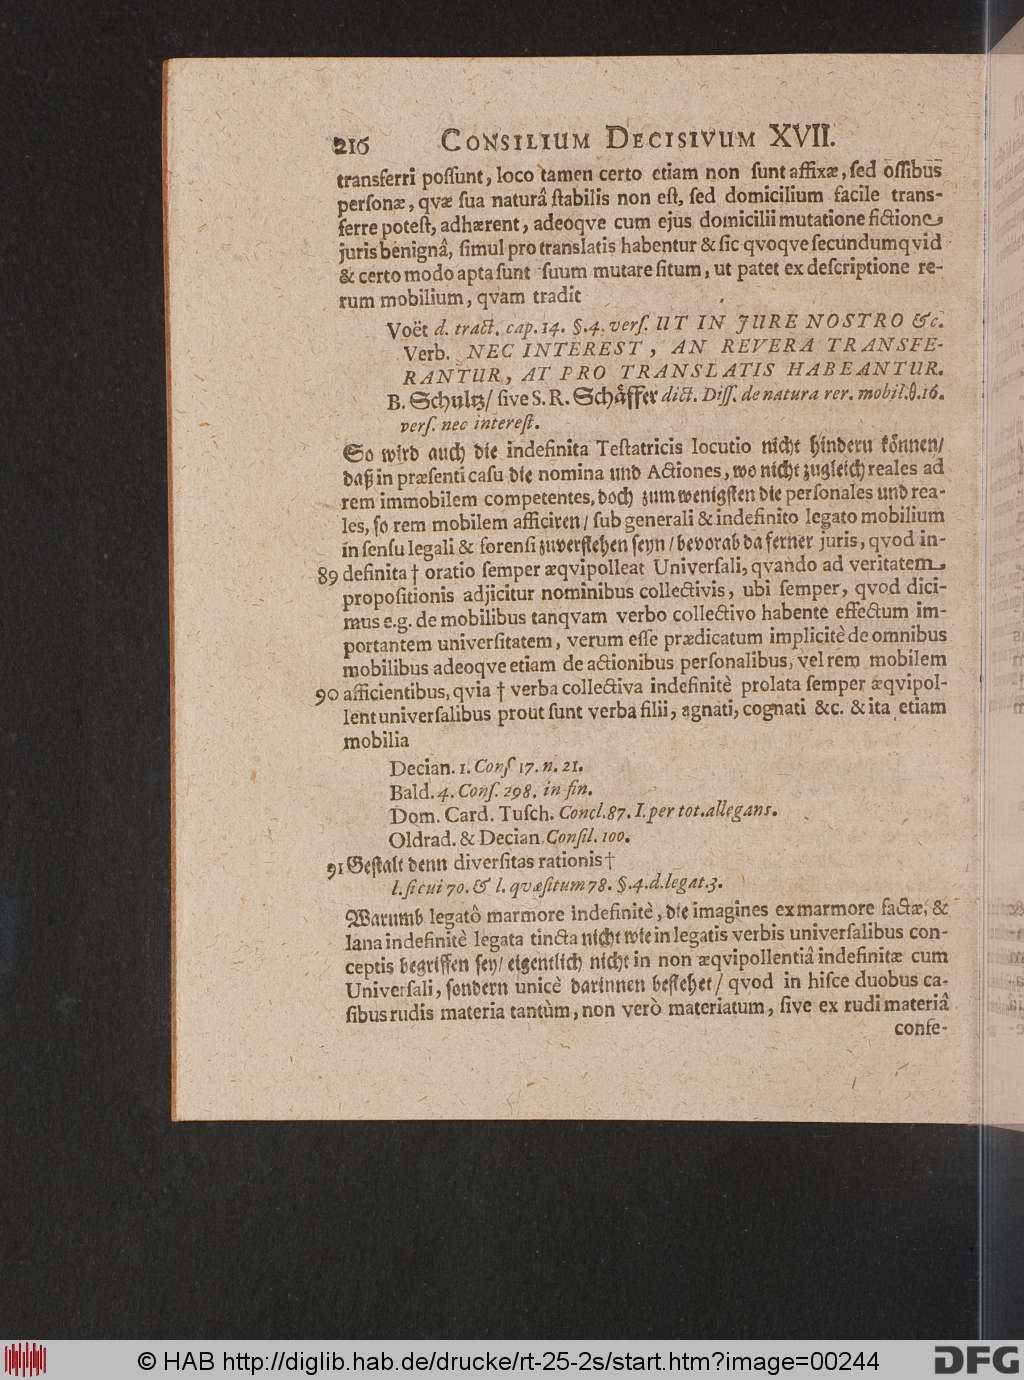 216 CONSILIUM DECISIVUM XVII.
transferri poſſunt, loco tamen certo etiam non ſunt affixæ, ſed oſſibus
perſonæ, qvæ ſua naturâ ſtabilis non eſt, ſed domicilium facile trans-
ferre poteſt, adhærent, adeoqve cum ejus domicilii mutatione fictione
juris benignâ, ſimul pro translatis habentur & ſic qvoqve ſecundum qvid
& certo modo apta ſunt ſuum mutare ſitum, ut patet ex deſcriptione re-
rum mobilium, qvam tradit
Voët d. tract. cap. 14. §. 4. verſ. UT IN JURE NOSTRO &c.
Verb. NEC INTEREST, AN REVERA TRANSFE-
RANTUR, AT PRO TRANSLATIS HABEANTUR.
B. Schultz/ ſive S. R. Schåffer dict. Diſſ. de natura rer. mobil. θ. 16.
verſ. nec intereſt.
So wird auch die indefinita Teſtatricis locutio nicht hindern kőnnen/
daß in præſenti caſu die nomina und Actiones, wo nicht zugleich reales ad
rem immobilem competentes, doch zum wenigſten die perſonales und rea-
les, ſo rem mobilem afficiren/ ſub generali & indefinito legato mobilium
in ſenſu legali & forenſi zuverſtehen ſeyn/ bevorab da ferner juris, qvod in-
89 definita † oratio ſemper æqvipolleat Univerſali, qvando ad veritatem
propoſitionis adjicitur nominibus collectivis, ubi ſemper, qvod dici-
mus e.g. de mobilibus tanqvam verbo collectivo habente effectum im-
portantem univerſitatem, verum eſſe prædicatum implicitè de omnibus
mobilibus adeoqve etiam de actionibus perſonalibus, vel rem mobilem
90 afficientibus, qvia † verba collectiva indefinitè prolata ſemper æqvipol-
lent univerſalibus prout ſunt verba filii, agnati, cognati &c. & ita etiam
mobilia
Decian. 1. Conſ 17. n. 21.
Bald. 4. Conſ. 298. in fin.
Dom. Card. Tuſch. Concl. 87. I. per tot. allegans.
Oldrad. & Decian. Conſil. 100.
91 Geſtalt denn diverſitas rationis †
l. ſi cui 70. & l. qvæſitum 78. §. 4. d. legat. 3.
Warumb legatô marmore indefinitè, die imagines ex marmore factæ, &
lana indefinitè legata tincta nicht wie in legatis verbis univerſalibus con-
ceptis begriffen ſey/ eigentlich nicht in non æqvipollentiâ indefinitæ cum
Univerſali, ſondern unicè darinnen beſtehet/ qvod in hiſce duobus ca-
ſibus rudis materia tantùm, non verò materiatum, ſive ex rudi materiâ
confe-
© HAB http://diglib.hab.de/drucke/rt-25-2s/start.htm?image=00244
DFG